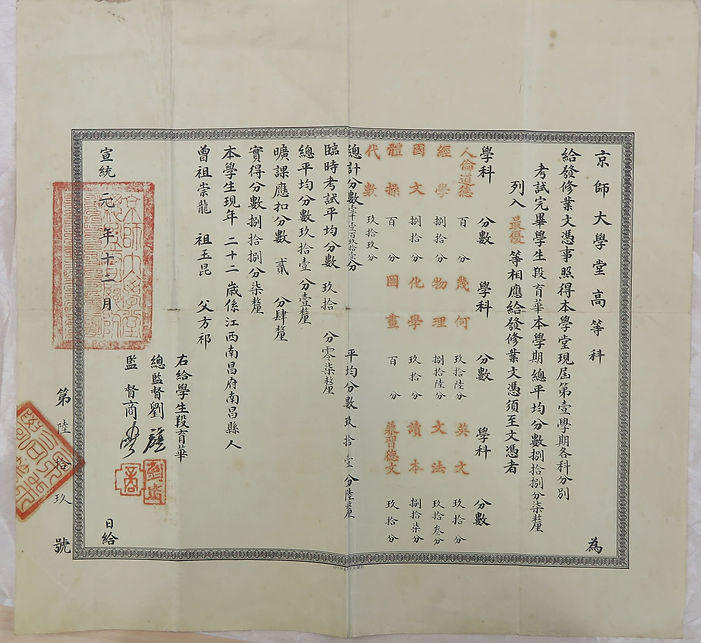 京師大學堂高等科 為
給發修業文憑事照得本學堂現屆第壹學期各科分別
考試完畢學生段育華本學期總平均分數捌拾捌分柒釐
列入最優等相應給發修業文憑須至文憑者
學科 分數 學科 分數 學科 分數
人倫道德 百分 幾何 玖拾陸分 英文 玖拾分
經學 捌拾分 物理 捌拾陸分 文法 玖拾叁分
國文 捌拾分 化學 玖拾分 讀本 捌拾柒分
體操 百分 圖畫 百分 兼習德文 玖拾分
代數 玖拾玖分
總計分數壹千壹百玖拾壹分 平均分數玖拾壹分陸釐
臨時考試平均分數玖拾分零柒釐
總平均分數玖拾壹分壹釐
曠課應扣分數貳分肆釐
實得分數捌拾捌分柒釐
本學生現年二十二歲係江西南昌府南昌縣人
曾祖崇龍 祖玉昆 父方祁
右給學生段育華
總監督劉
監督商
宣統元年十二月 日給
第陸拾玖號